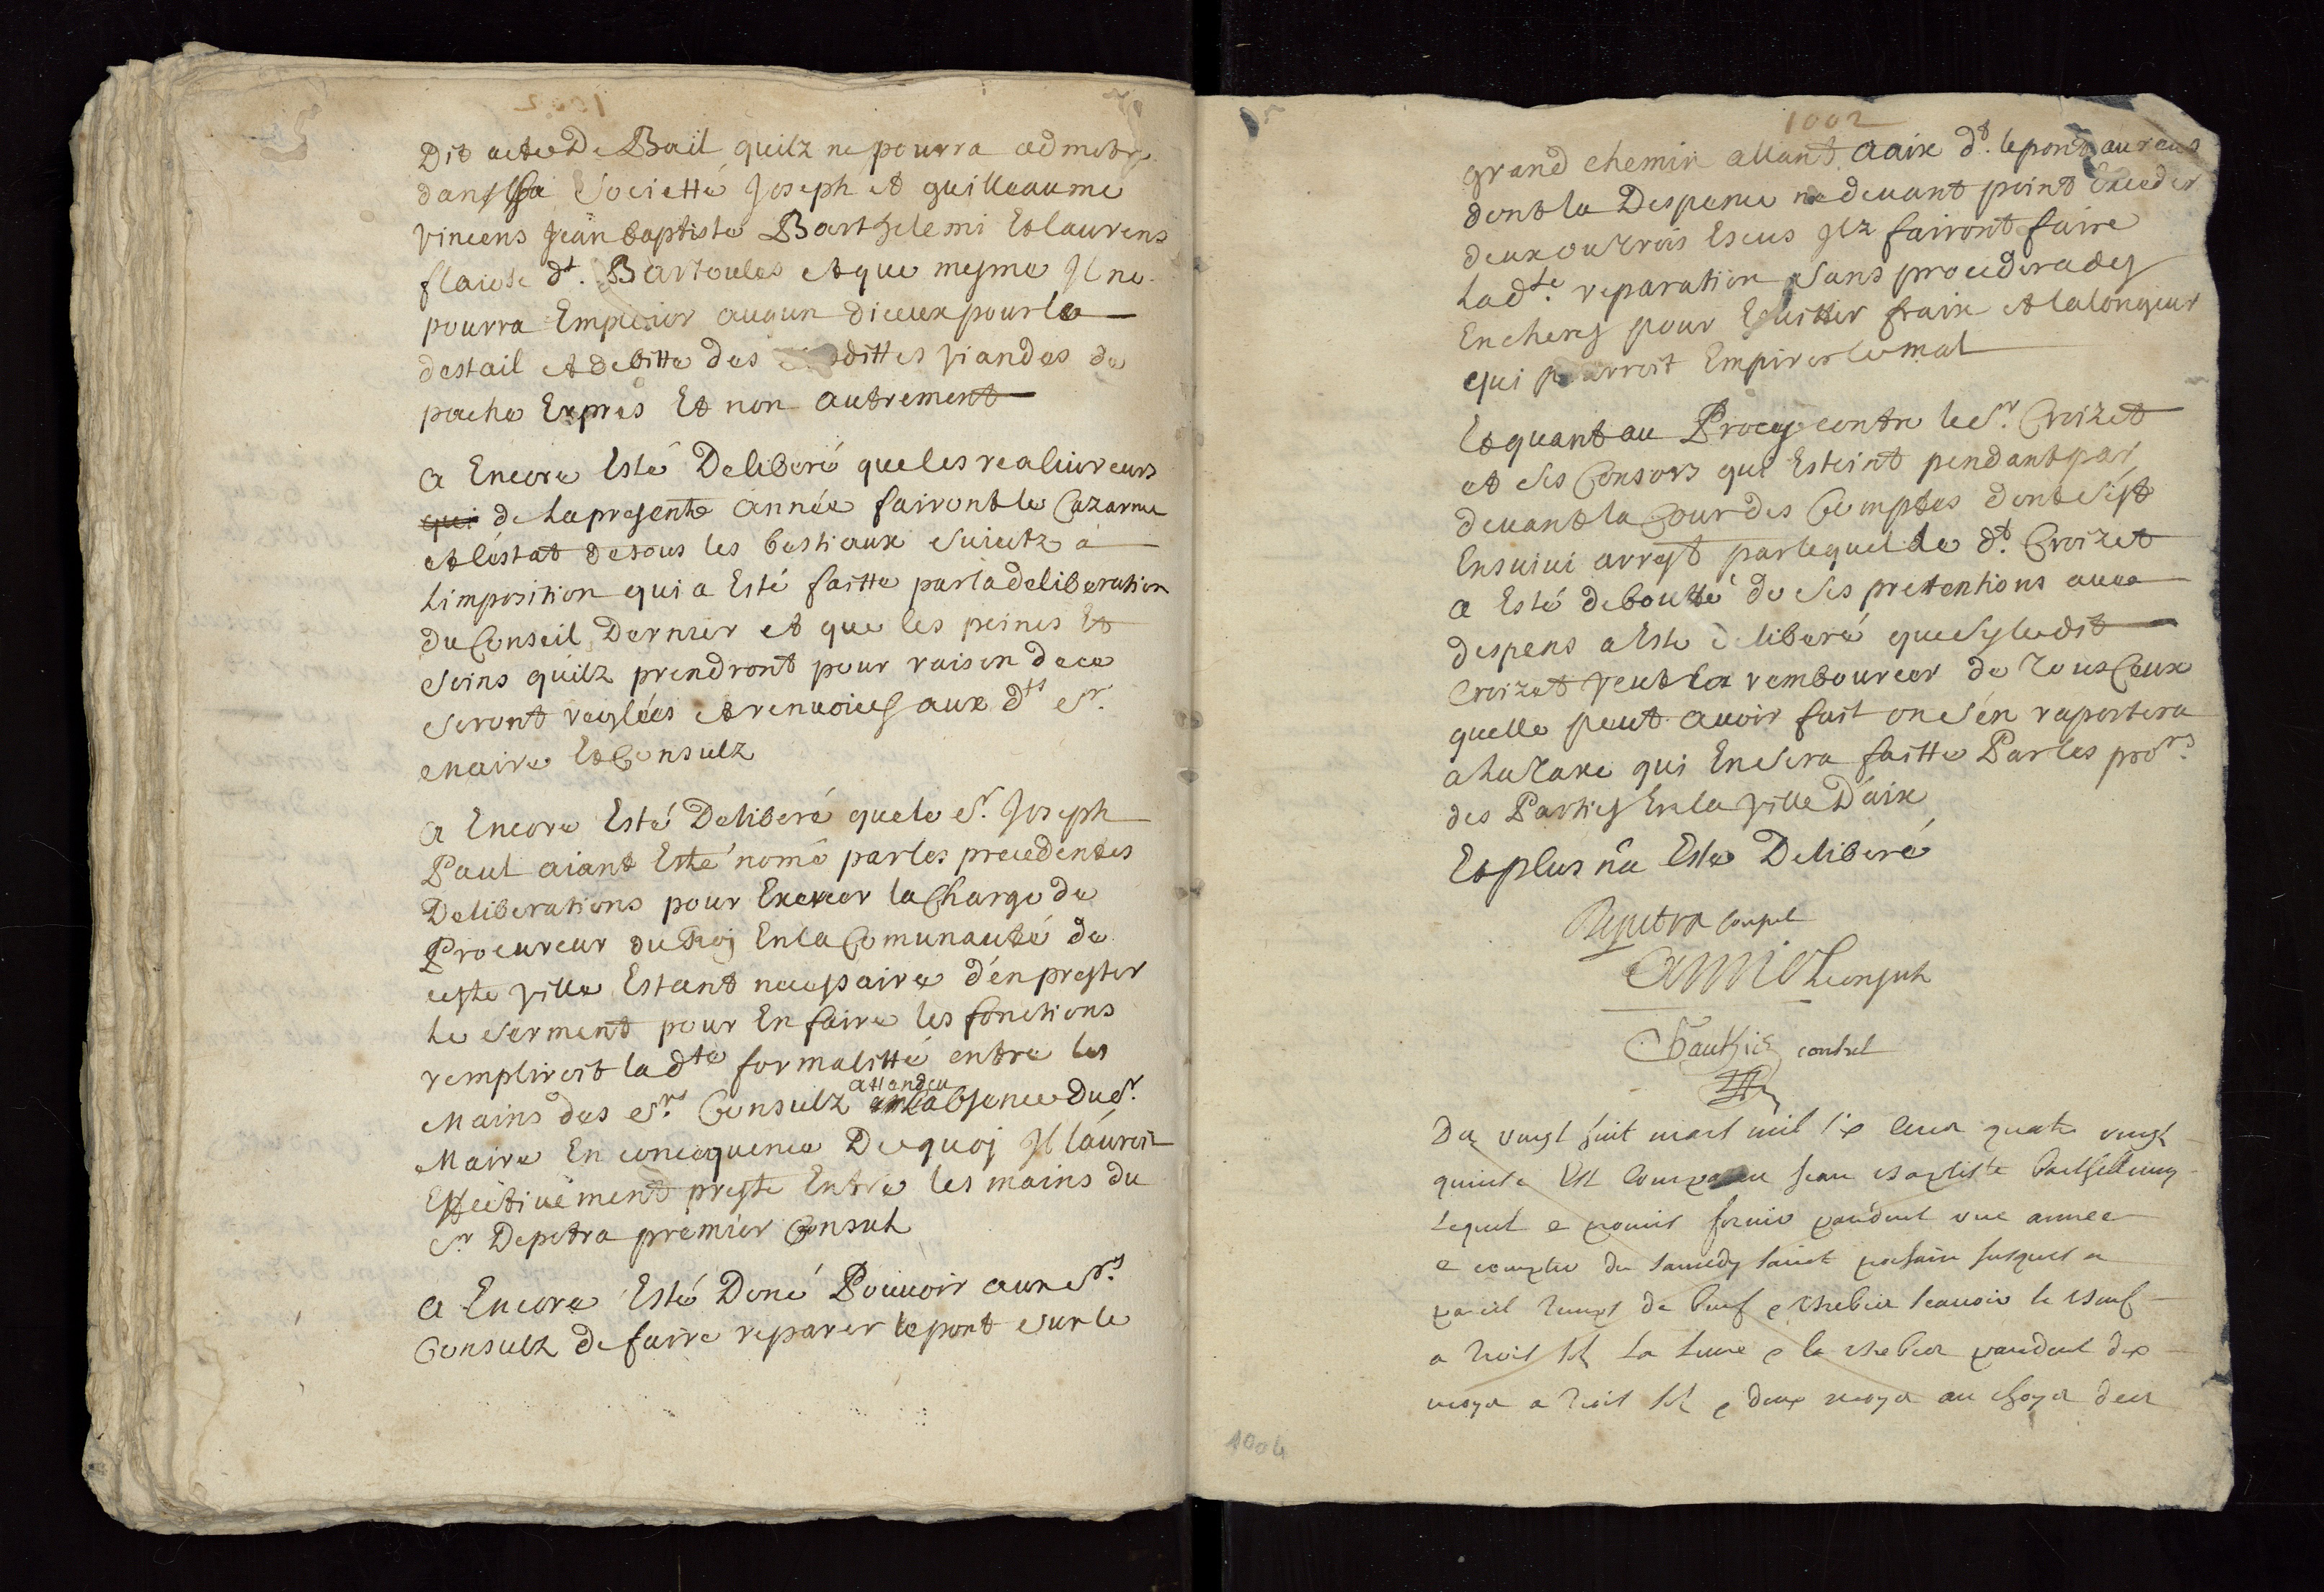 Dit acte De Bail quilz ne pourra admetre
dans sa Societté Joseph et guilleaume
vincens Jean baptiste Barthelemi Et laurens
flaiose dt. Bartoules et que mesme Il ne
pourra Emploier aucun diceux pour le
destail et debitte des dittes viandes de
pache Exprés Et non autrement
a Encore Esté Deliberé que les realiureurs
qui de la presente année fairont le Cazarnet
et léstat de tous les bestiaux suiectz a
Limposition qui a Esté faitte par la deliberation
du Conseil Dernier et que les peines Et
soins quilz prendront pour raison de ce
seront reglées et renuoiées aux dts sr.
maire Et Consulz
a Encore Esté Deliberé que le sr. Joseph
Paul aiant Esté nomé par les precedentes
Deliberations pour Exercer la Charge de
Procureur du Roj En la Comunauté de
ceste ville Estant necessaire d'en prester
le serment pour En faire les fonctions
rempliroit la dte formalitté entre les
Mains des srs Consulz attandeu labsence du sr.
Maire En concequence Dequoj Il l'auroit
Effectiuement presté Entre les mains du
sr Depetra premier Consul
a Encore Esté Doné Pouuoir aux srs
Consulz de faire reparer le pont sur le
1002
grand chemin allant a aix dt. le pont aureus
dont la Despance ne deuant point Exceder
deux ou trois Escus Ilz fairont faire
Ladte. reparation sans proceder a des
Encheres pour Esuitter fraix et la longeur
qui pourroit Empirer le mal
Et quant au Procés contre le sr. Croizet
et ses Consors qui Esteint pendant par
deuant la Cour des Comptes dont s'est
Ensuiui arrest par lequel le dt. Croizet
a Esté deboutté de ses prettentions auec
despens a Esté deliberé que sy ledit
Croizet veut la rembourcer de tous Ceux
quelle peut auoir fait on s'en raportera
a la taxe qui En sera faitte Par les prors
des Parties En la ville D'aix
Et plus n'a Esté Deliberé
Depetra consul
amic consul
Gautier consul
Du vingt huit mars mil six cens quatre vingt
quinze Est Comparu Jean Baptiste Barthellemy
Lequel a promis fornir pandant une année
a compter du samedy saint prochain jusques a
pareil temps de beuf e brebis scauoir le beuf
a trois sols La liure e la brebis pandant dix
moys a trois sols e deux moys au choys des
1004